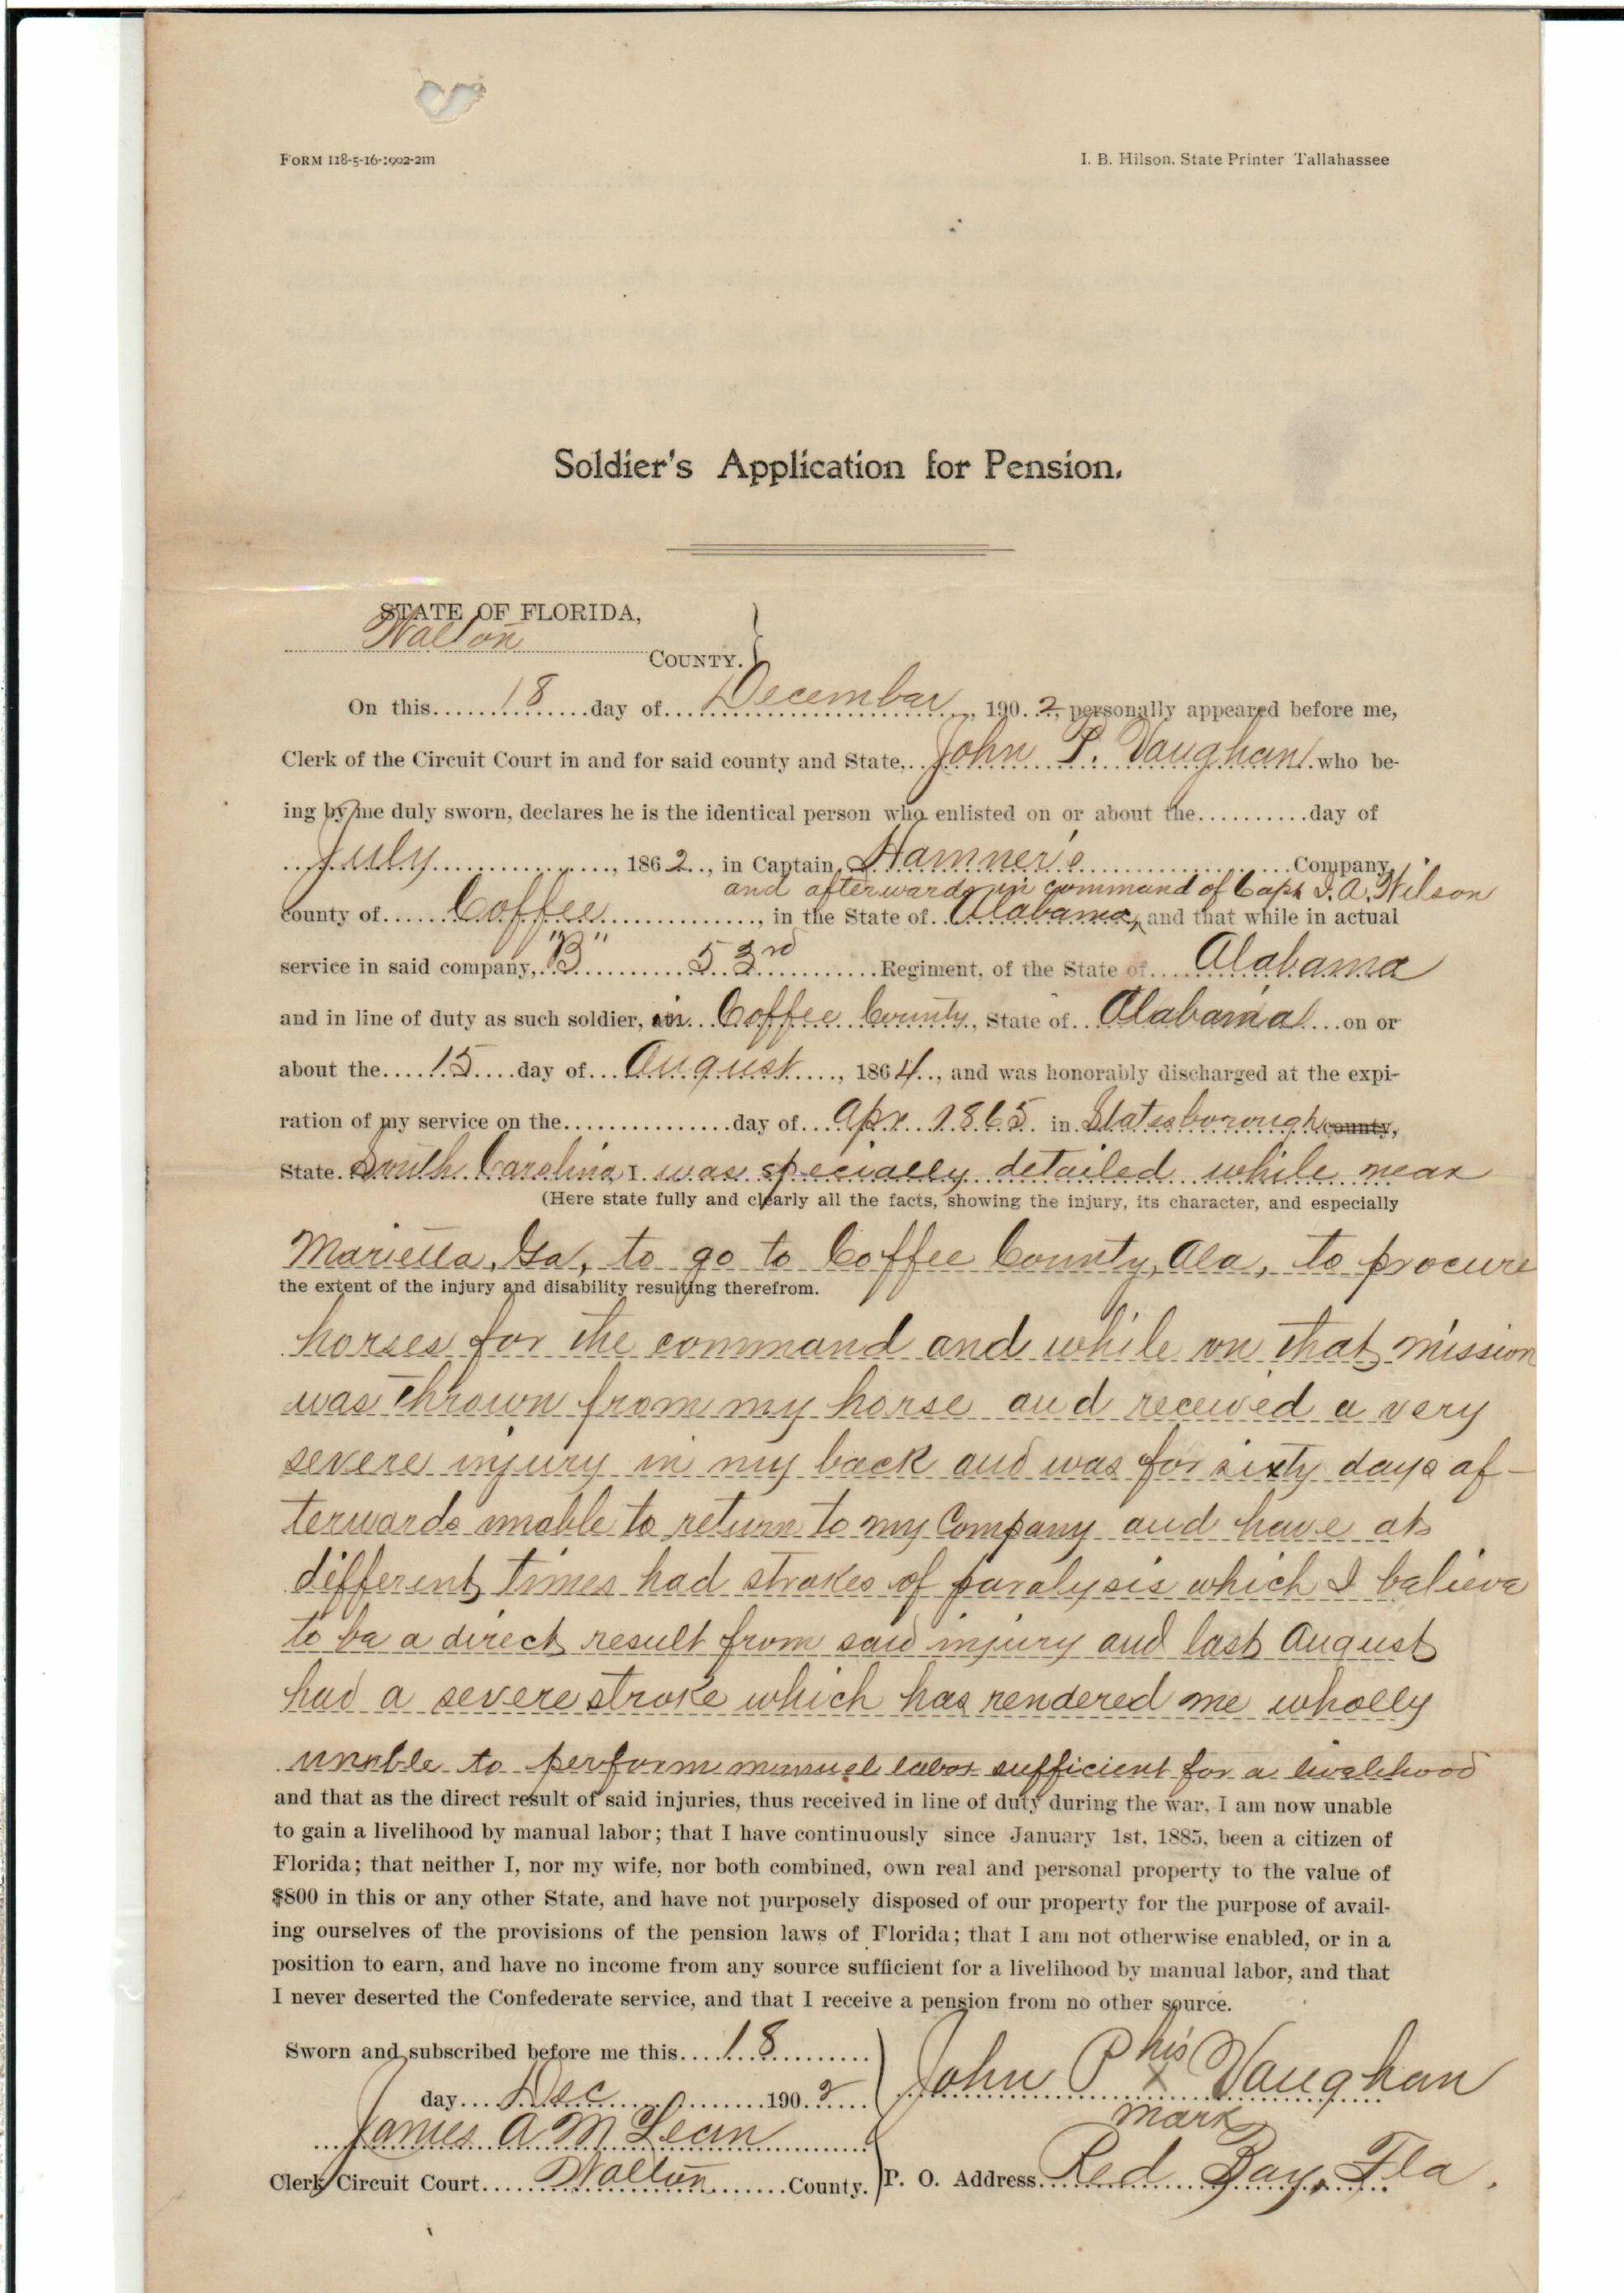 FORM 118-5-16-1902-2m
I. B. Hilson, State Printer Tallahassee
Soldier's Application for Pension.
STATE OF FLORIDA,
Walton COUNTY.
On this 18 day of December, 1902, personally appeared before me,
Clerk of the Circuit Court in and for said county and State, John P. Vaughan who be-
ing by me duly sworn, declares he is the identical person who enlisted on or about the..........day of
July, 1862, in Captain Hamner's Company,
and afterwards in command of Capt J. A. Wilson
county of Coffee, in the State of Alabama, and that while in actual
service in said company, "B" 53rd Regiment, of the State of Alabama
and in line of duty as such soldier, in Coffee County, State of Alabama on or
about the 15 day of August, 1864, and was honorably discharged at the expi-
ration of my service on the...............day of Apr 1865 in Statesborough county,
State South Carolina I was specially detailed while near
(Here state fully and clearly all the facts, showing the injury, its character, and especially
Marietta, Ga, to go to Coffee County, Ala, to procure
the extent of the injury and disability resulting therefrom.
horses for the command and while on that mission
was thrown from my horse and received a very
severe injury in my back and was for sixty days af-
terwards unable to return to my Company and have at
different times had strokes of paralysis which I believe
to be a direct result from said injury and last August
had a severe stroke which has rendered me wholly
unable to perform manuel labor sufficient for a livelihood
and that as the direct result of said injuries, thus received in line of duty during the war, I am now unable
to gain a livelihood by manual labor; that I have continuously since January 1st, 1885, been a citizen of
Florida; that neither I, nor my wife, nor both combined, own real and personal property to the value of
$800 in this or any other State, and have not purposely disposed of our property for the purpose of avail-
ing ourselves of the provisions of the pension laws of Florida; that I am not otherwise enabled, or in a
position to earn, and have no income from any source sufficient for a livelihood by manual labor, and that
I never deserted the Confederate service, and that I receive a pension from no other source.
Sworn and subscribed before me this 18
day Dec 1902
his
John P x Vaughan
mark
James A McLean
Clerk Circuit Court Walton County.
P. O. Address Red Bay, Fla.